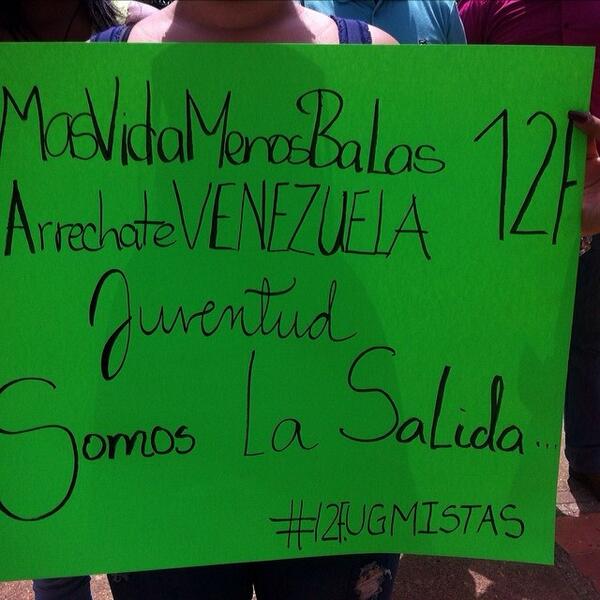 MasVidaMenosBaLas 12F
ArrechateVENEZUELA
Juventud
Somos La SaLida...
#12F.UGMISTAS